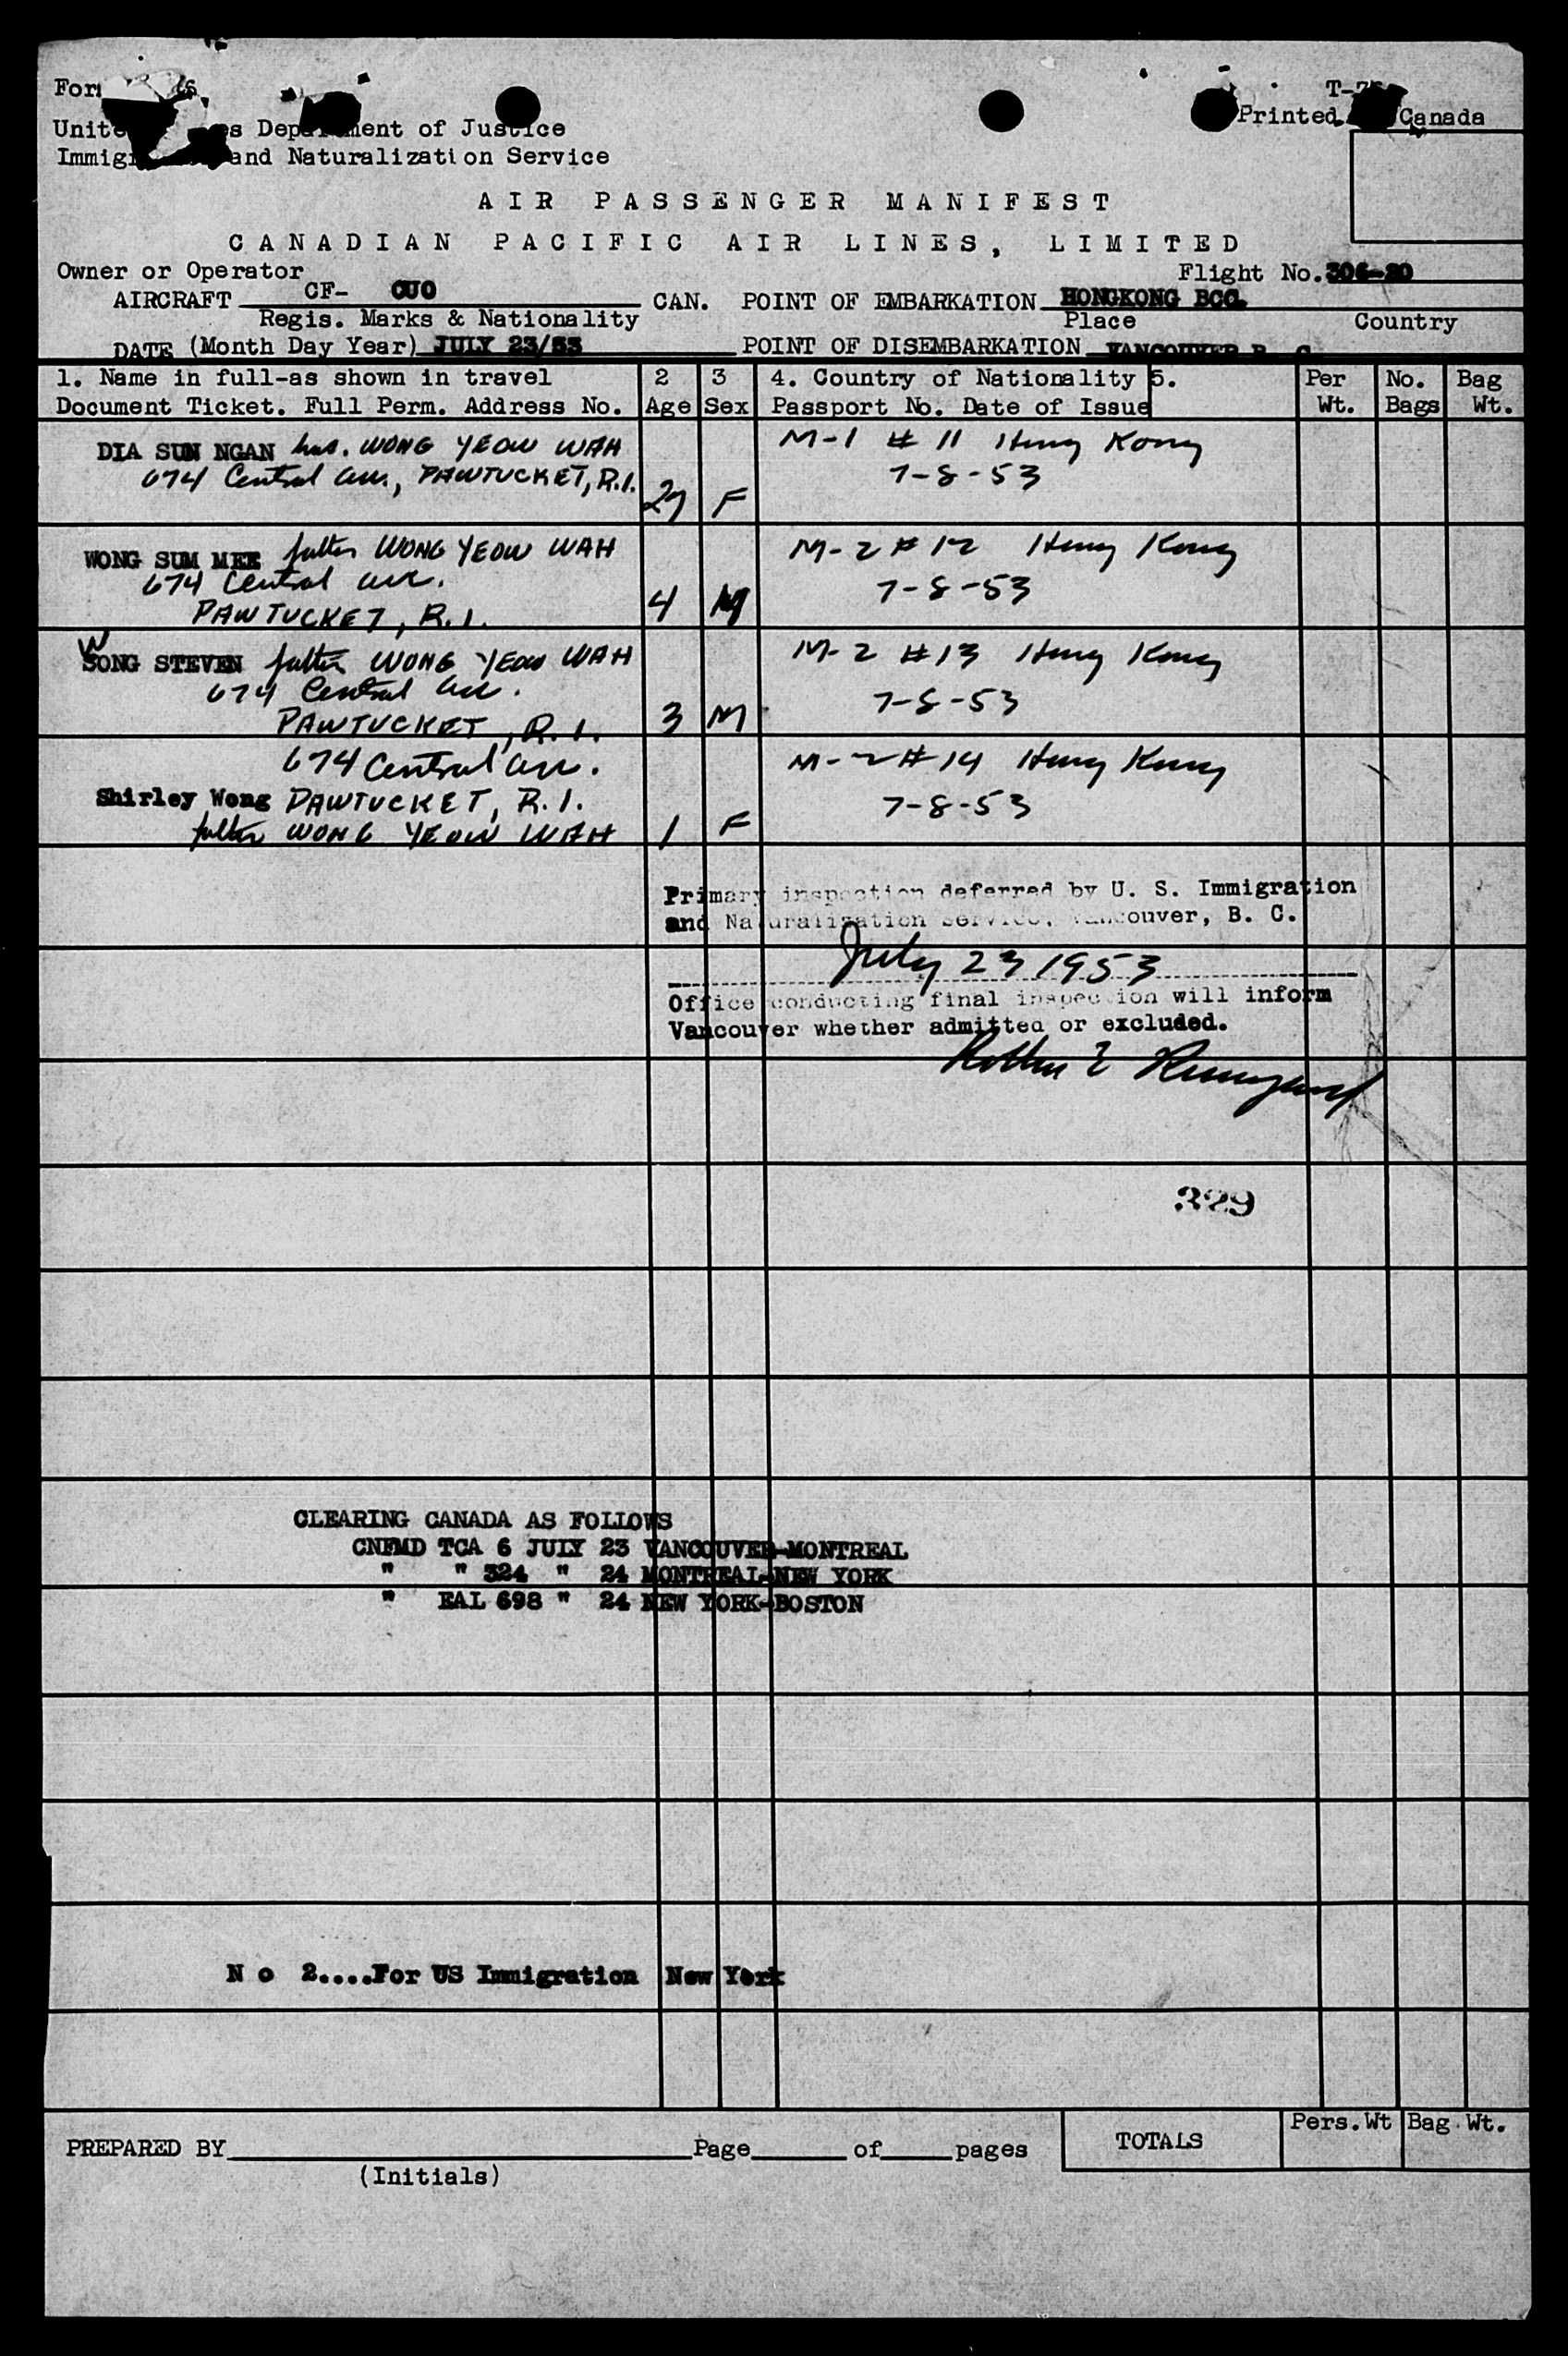 Unite s Dep ment of Justice
Immig and Naturalization Service
Printed Canada
AIR PASSENGER MANIFEST
CANADIAN PACIFIC AIR LINES, LIMITED
Owner or Operator
Flight No. 306-20
AIRCRAFT CF- CUO CAN. POINT OF EMBARKATION HONGKONG BCC.
Regis. Marks & Nationality Place Country
DATE (Month Day Year) JULY 23/53 POINT OF DISEMBARKATION VANCOUVER B. C.
1. Name in full-as shown in travel 2 3 4. Country of Nationality 5. Per No. Bag
Document Ticket. Full Perm. Address No. Age Sex Passport No. Date of Issue Wt. Bags Wt.
DIA SUN NGAN hus. WONG YEOW WAH M-1 # 11 Hong Kong
674 Central ave., PAWTUCKET, R.I. 27 F 7-8-53
WONG SUM MEE father WONG YEOW WAH M-2 # 12 Hong Kong
674 Central ave. 7-8-53
PAWTUCKET, R.I. 4 M
WONG STEVEN father WONG YEOW WAH M-2 #13 Hong Kong
674 Central ave. 7-8-53
PAWTUCKET, R.I. 3 M
674 Central ave. M-2 #14 Hong Kong
Shirley Wong PAWTUCKET, R.I. 7-8-53
father WONG YEOW WAH 1 F
Primary inspection deferred by U. S. Immigration
and Naturalization Service, Vancouver, B. C.
July 23 1953
Office conducting final inspection will inform
Vancouver whether admitted or excluded.
329
CLEARING CANADA AS FOLLOWS
CNFMD TCA 6 JULY 23 VANCOUVER-MONTREAL
" " 324 " 24 MONTREAL-NEW YORK
" EAL 698 " 24 NEW YORK-BOSTON
N o 2....For US Immigration New York
Pers.Wt Bag Wt.
PREPARED BY Page of pages TOTALS
(Initials)